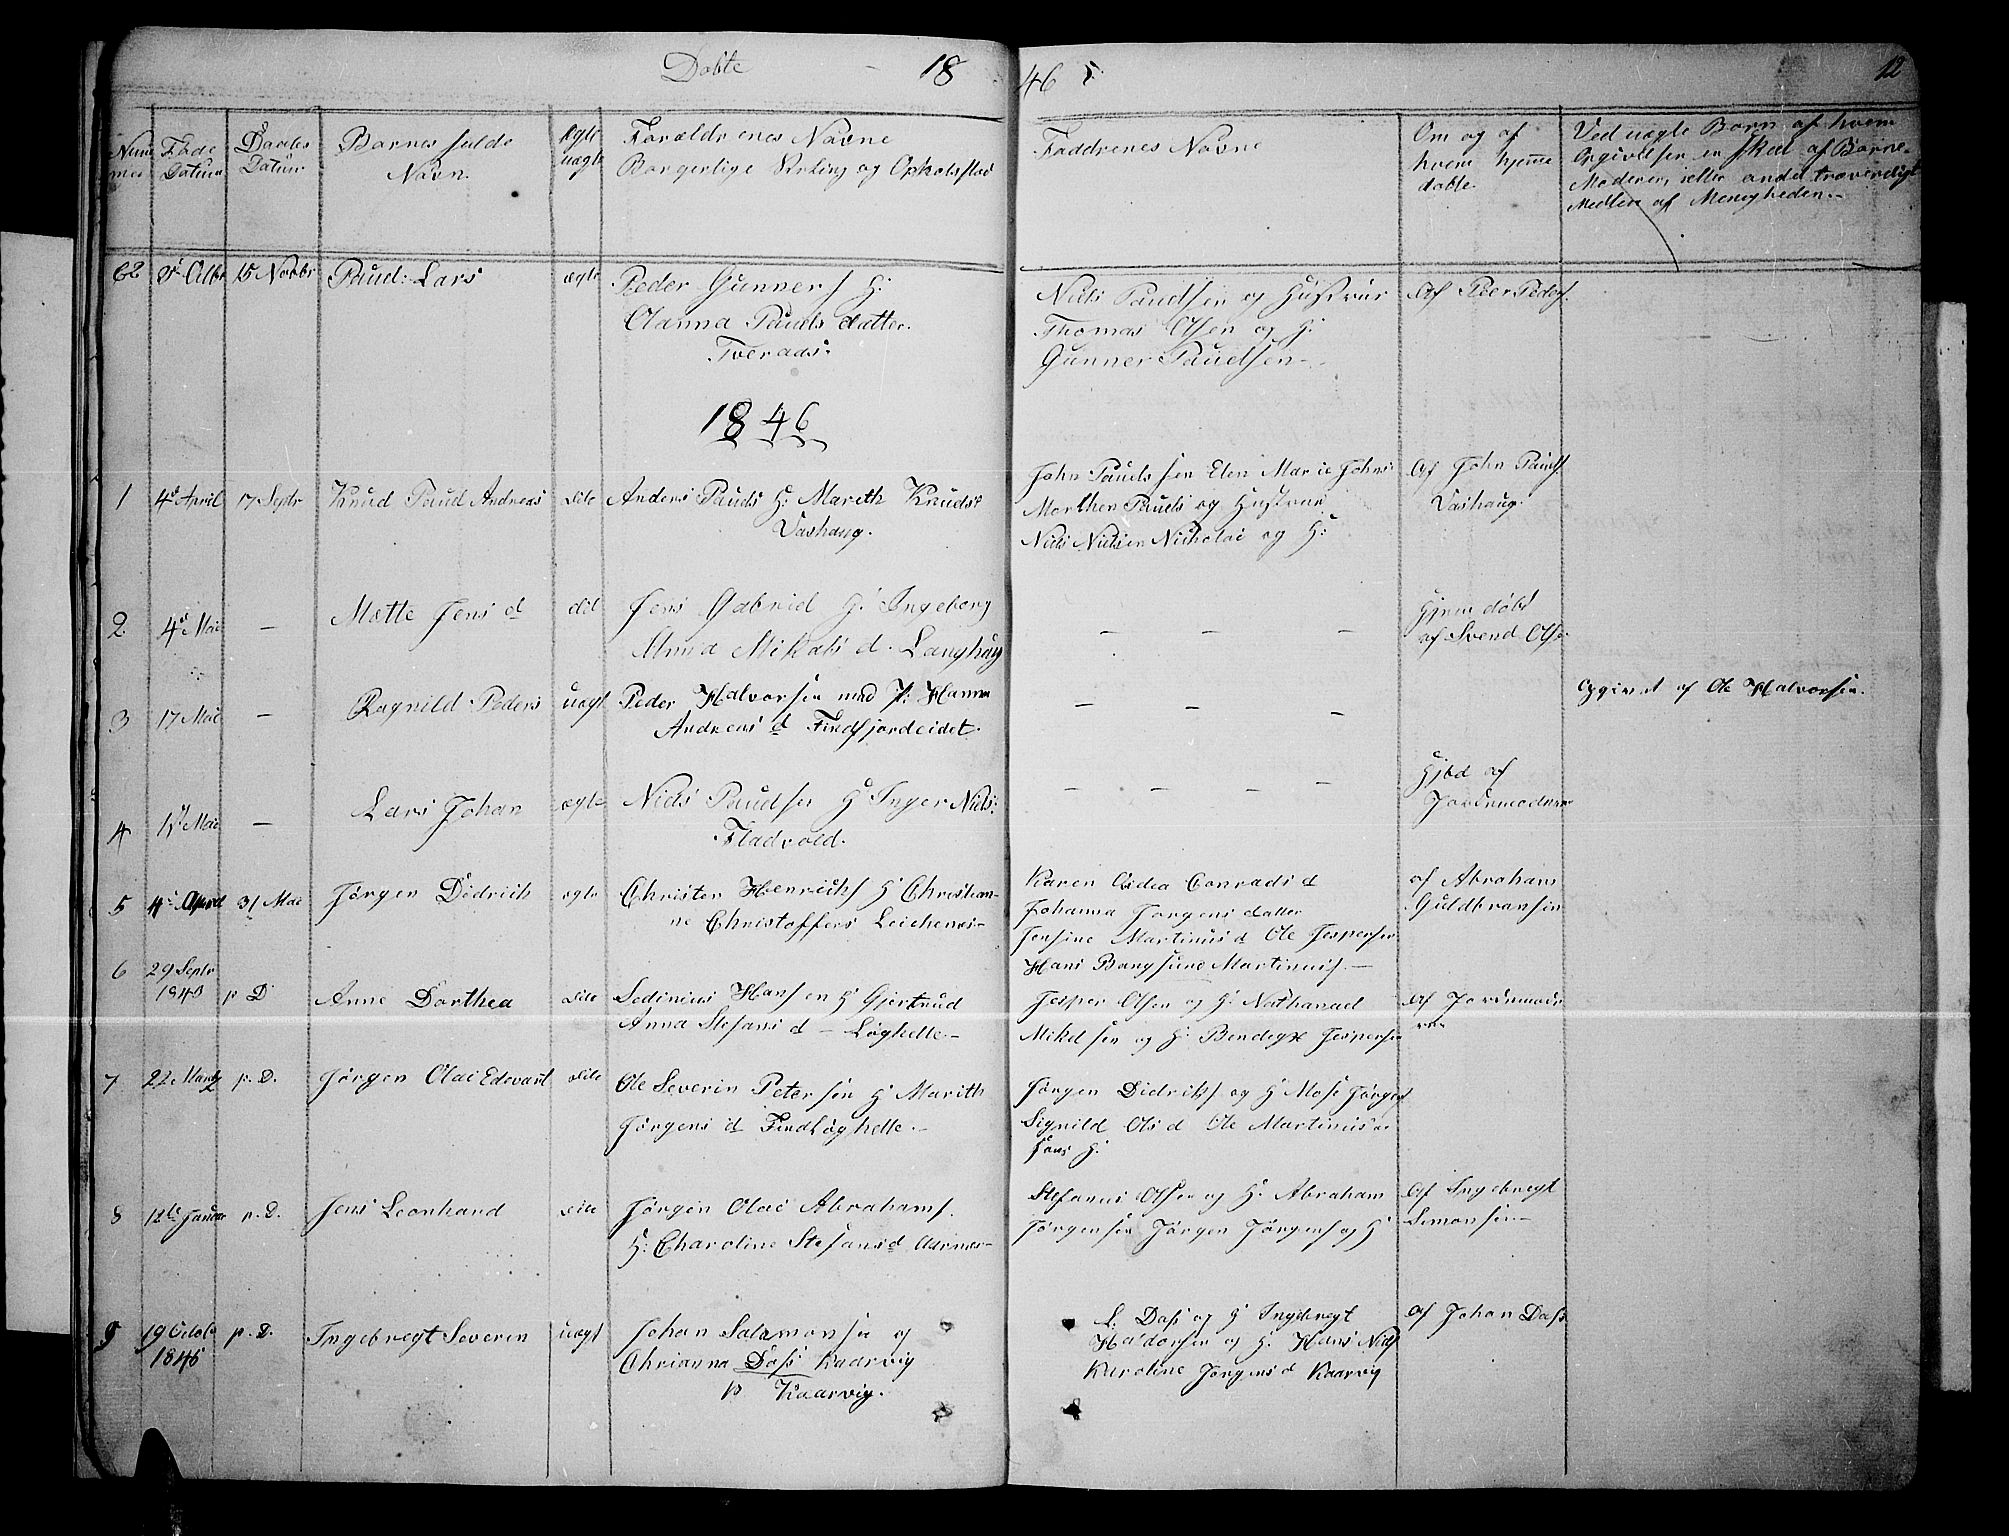 Døbte 18 46 12
Num mer
Føde Datum
Daabs Datum
Barnes fulde Navn
ægte uægte
Forældrenes Navne Borgerlige Stilling og Opholsstæd
Faddrenes Navne
Om og af hvem hjemedøbte.
Ved uægte Børn af hvem Opgivelsen er skeet af Barne-Moderen eller andet troværdigt Medlem af Menigheden.
62 15 Novbr Paul: Lars ægte Peder Gunners H:
Olanna Pauls datter.
Nils Paulsen og Hustrue
Thomas Olsen og H:
Gunner Paulsen
Af Peer Peders.
1846
1 4de April 17 Septr Knud Paul Andreas dito Anders Pauls H: Mareth Knuds:
Vashaug.
John Paulssen Elen Marie Johns:
Morthen Pauls og Hustrue
Niels Nielsen Nicholai og H:
Af John Pauls.
Vashaug.
2 4de Mai — Mette Jens d dito Jens Gabriel H: Ingeborg
Anna Mikals d. Langhaug
— — —
Hjemdøbt
af Svend Ols:
3 17 Mai — Ragnild Peders uægt Peder Halvorsen med P: Hanna
Andreas d Findfjordeidet.
— — —
Opgivet af Ole Halvorsen.
4 Mai — Lars Johan ægte Niels Paulsen H: Inger Niels:
Fladvold.
— — — —
af
Jordemoderen
5 4de April 31 Mai Jørgen Didrich ægte Christen Henrichs H: Christian-
ne Christoffers
Karen Conrads d
Johanna Jørgens datter
Jensine Martinus d Ole Jespersen
Hans Bangsund Martinus.
af Abraham
Guldbransen
6 29 Septr
p D Anne Dorthea dito Sedinius Hansen H: Gjertrud
Anna Stefans d — Løghelle —
Jesper Olsen og H: Nathanael
Mikelsen og H: Jespersen
Af Jordemode
ren
7 22 Martz p. D. Jørgen Olai Edevart dito Ole Severin Petersen H: Marith
Jørgens d FindLøghelle.
Jørgen Didriks og H: Jørgens
Signild Ols d Ole Martinus
H:
8 12te Januar p. D. Jens Leonhard dito Jørgen Olai Abrahams.
H: Charoline Stefans d Aarnes-
Stefanus Olsen og H: Abraham
Jørgensen Jørgen Jørgens og H:
Af Ingebregt
Simonsen —
9 19 Octob
1845 p. D. Ingebregt Severin uægt Johan Salamonsen og
Chrianna Dass Kaarvig
p Kaarvig.
L: Dass og H: Ingebregt
Haldorsen og H: Hans Niels
Karoline Jørgens d Kaarvig
Af Johan Dass